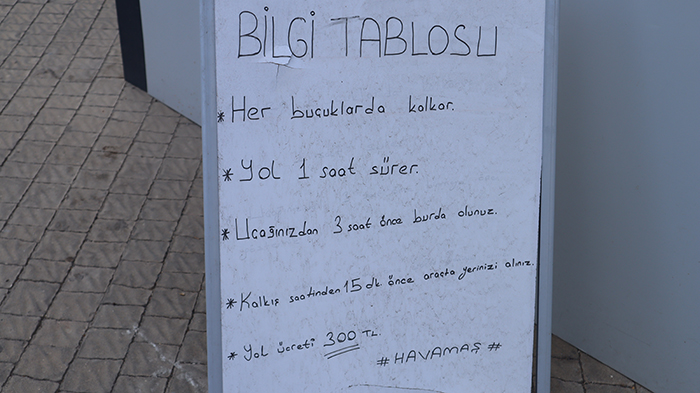 BİLGİ TABLOSU
* Her buçuklarda kalkar.
* Yol 1 saat sürer.
* Uçağınızdan 3 saat önce burda olunuz.
* Kalkış saatinden 15 dk. önce araçta yerinizi alınız.
* Yol ücreti 300 TL.
# HAVAMAŞ #